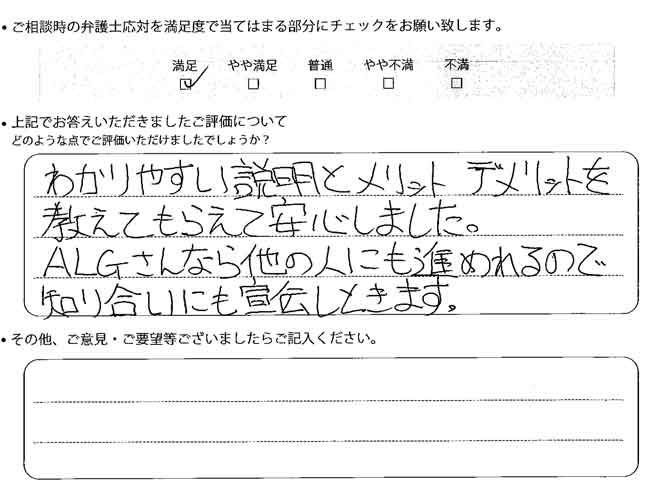 • ご相談時の弁護士応対を満足度で当てはまる部分にチェックをお願い致します。
満足 やや満足 普通 やや不満 不満
☑ □ □ □ □
• 上記でお答えいただきましたご評価について
どのような点でご評価いただけましたでしょうか？
わかりやすい説明とメリット デメリットを
教えてもらえて安心しました。
ALGさんなら他の人にも進めれるので
知り合いにも宣伝しときます。
• その他、ご意見・ご要望等ございましたらご記入ください。